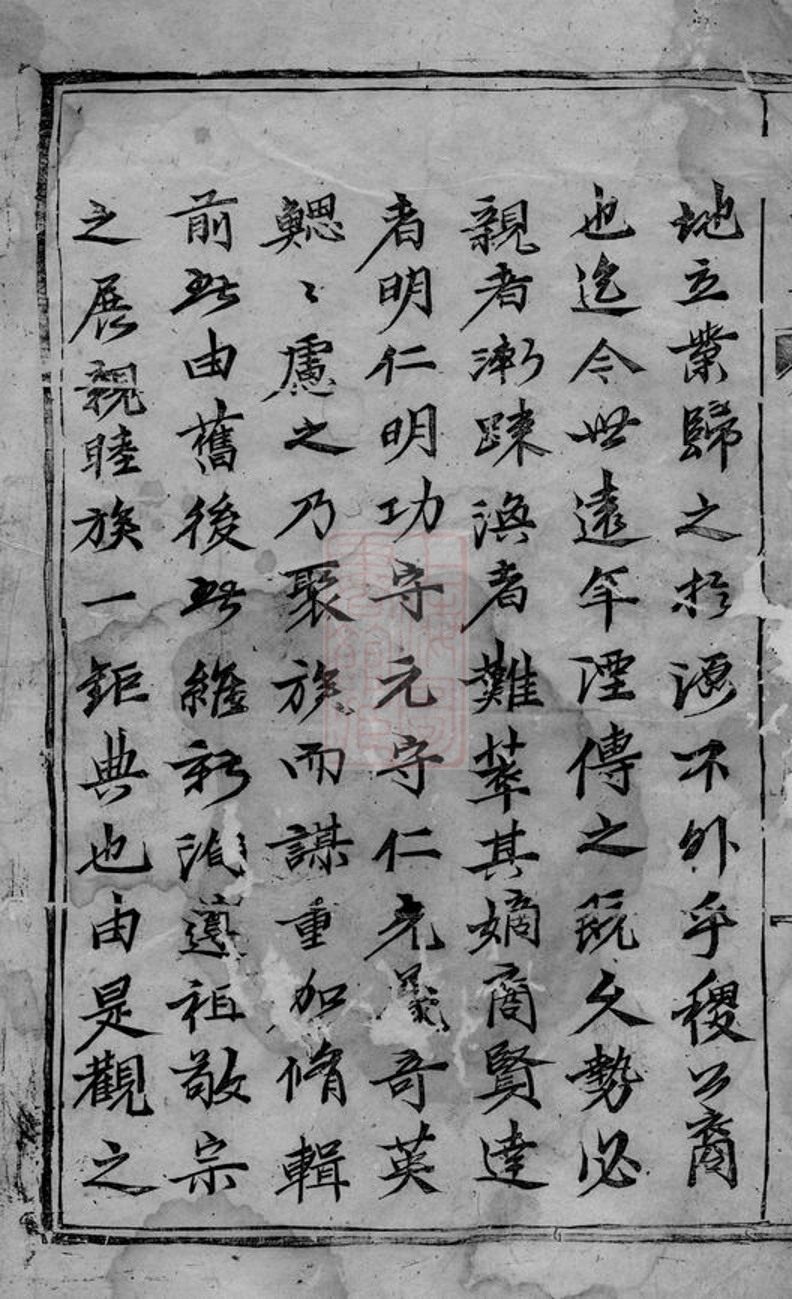 地立業歸之於源不外乎稷公裔
也迄今世遠年湮傳之既久勢必
親者漸踈渙者難萃其嫡裔賢達
者明仁明功守元守仁光奇英
鰓〻慮之乃聚族而謀重加脩輯
前此由舊後此維新洵遵祖敬宗
之展親睦族一鉅典也由是觀之